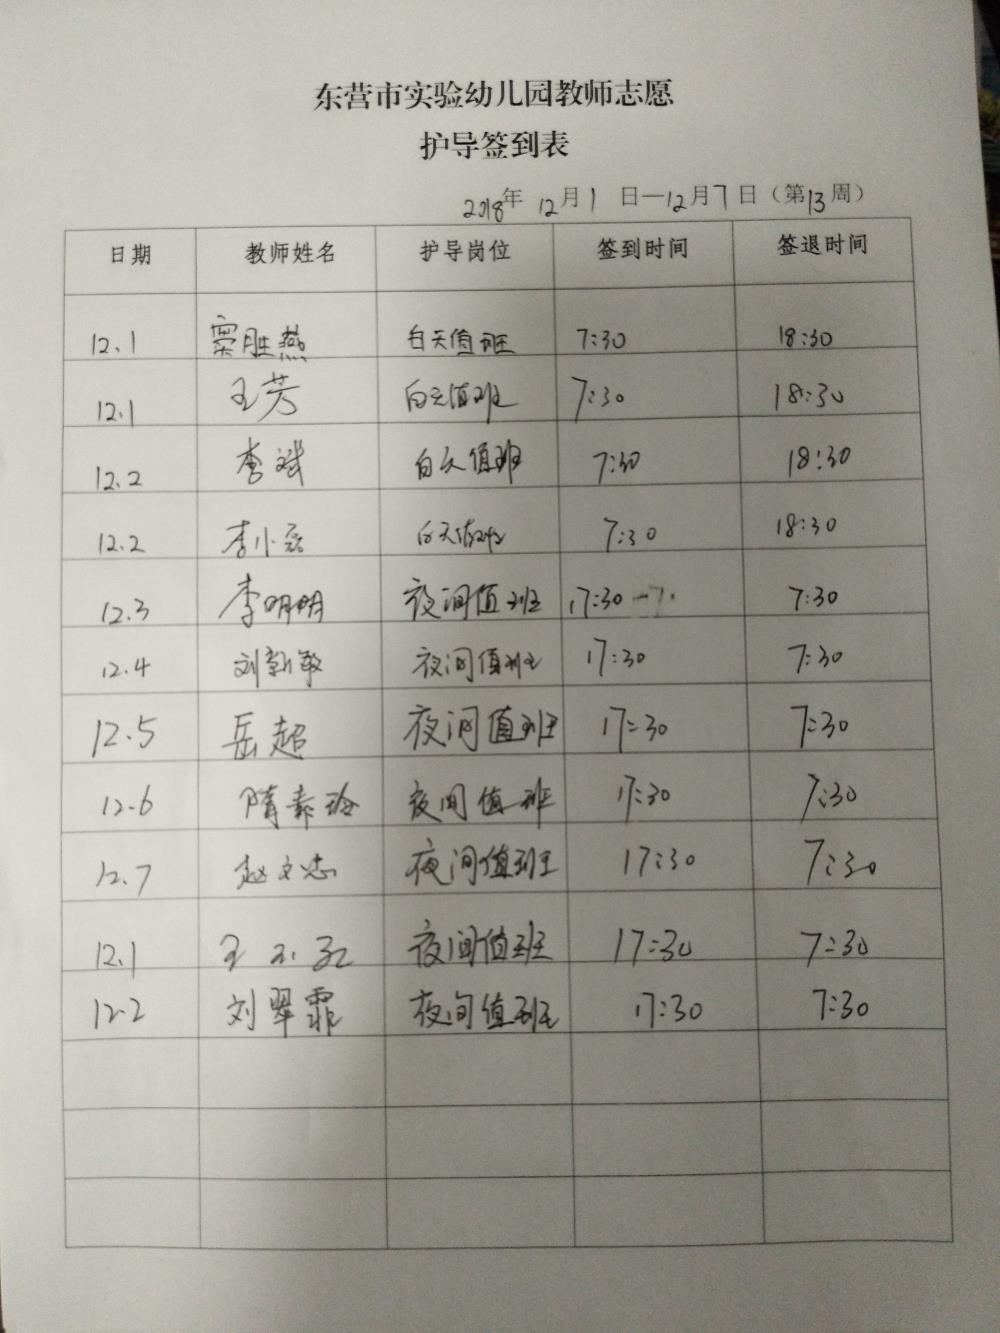 东营市实验幼儿园教师志愿
护导签到表
2018年 12月1日—12月7日（第13周）
日期 教师姓名 护导岗位 签到时间 签退时间
12.1 窦胜燕 白天值班 7:30 18:30
12.1 王芳 白天值班 7:30 18:30
12.2 李斌 白天值班 7:30 18:30
12.2 李小磊 白天值班 7:30 18:30
12.3 李明明 夜间值班 17:30 7:30
12.4 刘新敏 夜间值班 17:30 7:30
12.5 岳超 夜间值班 17:30 7:30
12.6 隋素玲 夜间值班 17:30 7:30
12.7 赵文忠 夜间值班 17:30 7:30
12.1 王 夜间值班 17:30 7:30
12.2 刘翠霏 夜间值班 17:30 7:30